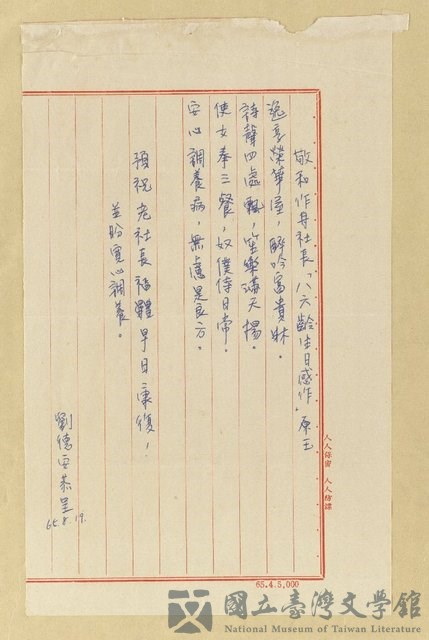 敬和作舟社長「八六齡生日感作」原玉
逸享榮華屋，醉吟富貴牀。
詩聲四處飄，笙樂滿天揚。
使女奉三餐，奴僕侍日常。
安心調養病，無慮是良方。
預祝老社長福體早日康復，
並盼寬心調養。
劉德 恭呈
65.8.19.
人人保密 人人檢謀
65.4.5,000
國立臺灣文學館
National Museum of Taiwan Literature